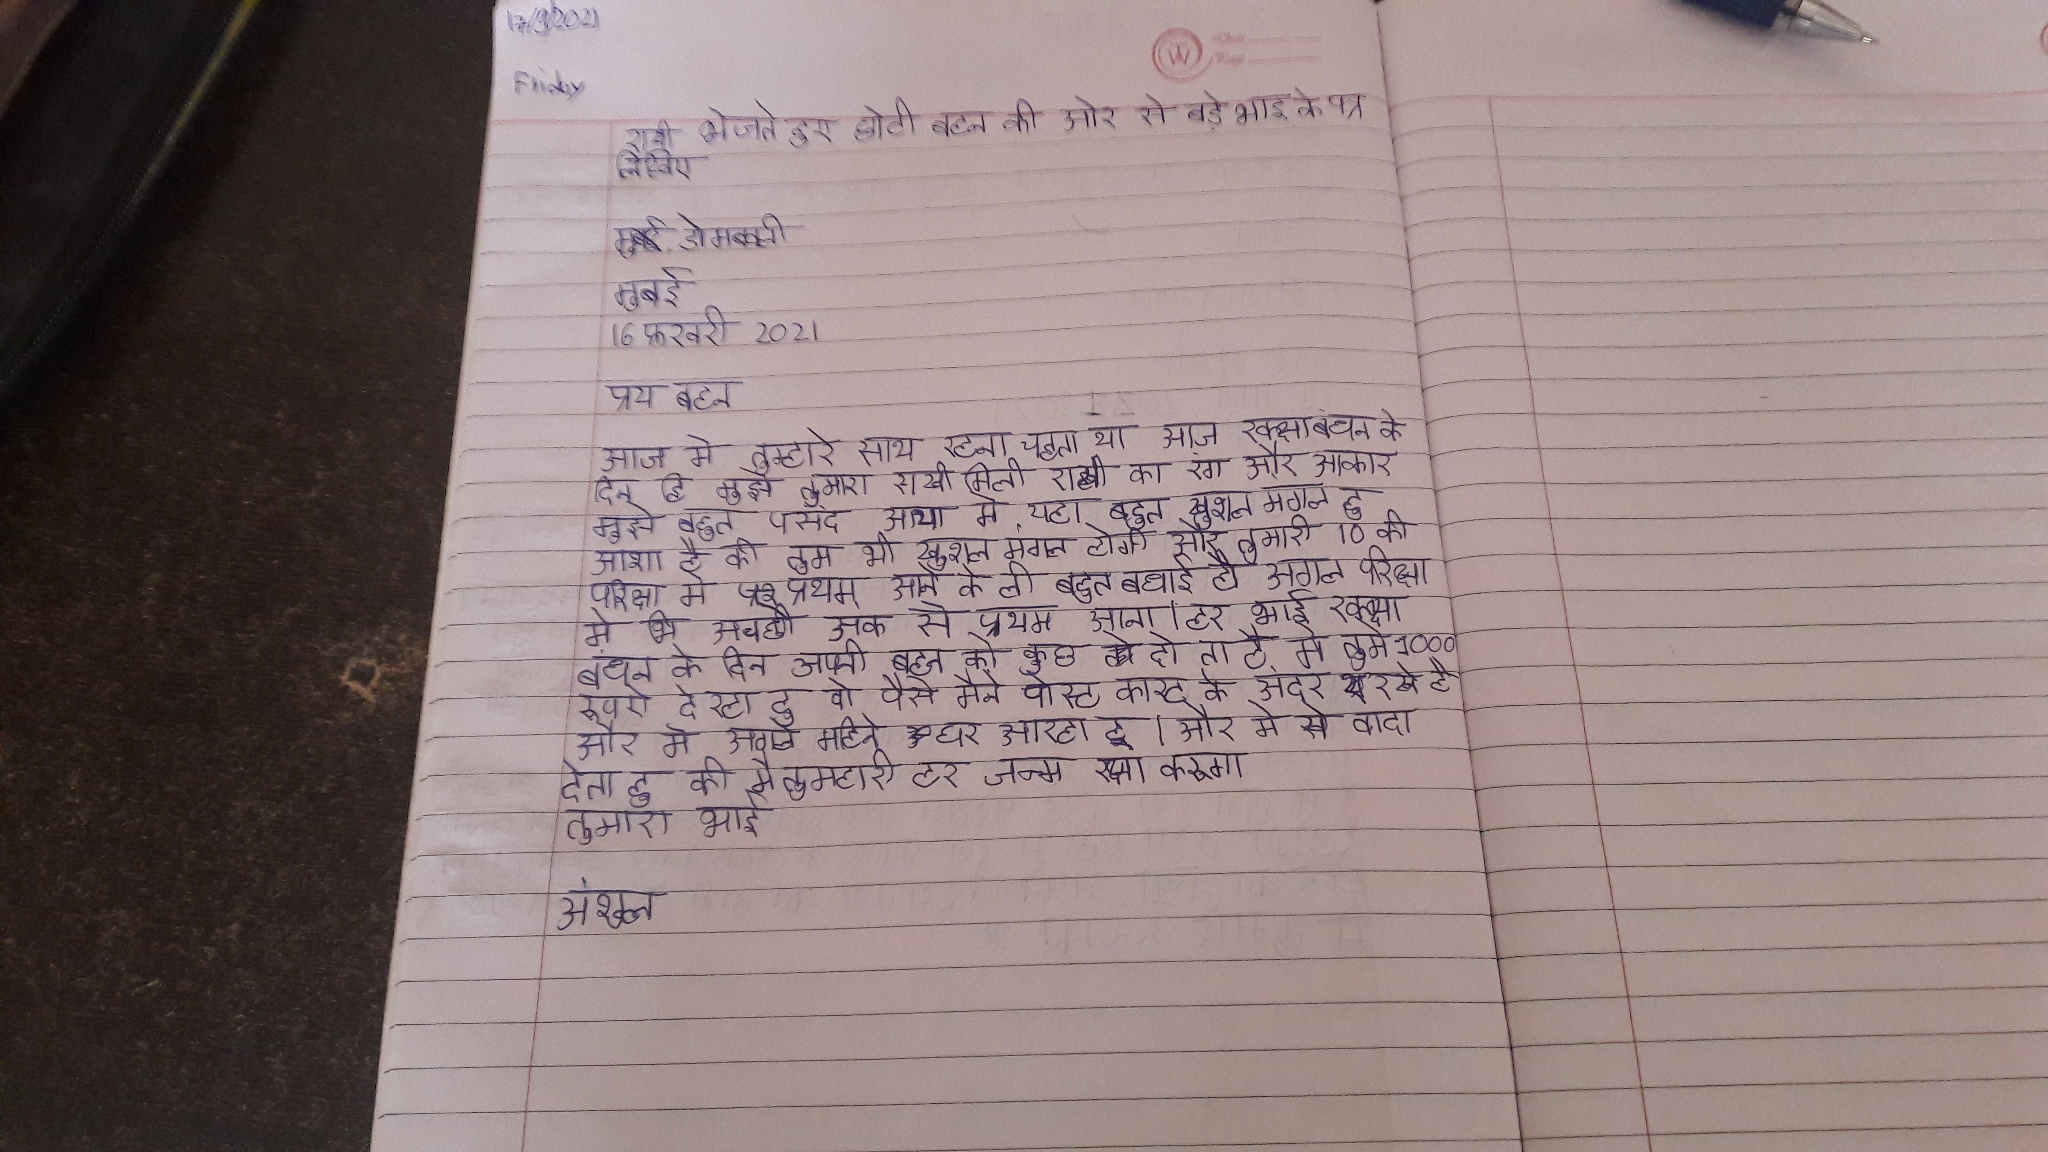 17/9/2021
Friday
राखी भेजते हुए छोटी बहन की ओर से बड़े भाइ के पत्र
लिखिए
डोमबकली
मुबई
16 फ़रवरी 2021
प्रय बहन
आज मे तुम्हारे साथ रहना चहता था आज रक्साबंधन के
दिन है मुझे तुमारा राखी मिली राखी का रंग और आकार
मुझे बहुत पसंद आया मे यहा बहुत खुशल मगल हु
आशा है की तुम भी खुशल मंगल होगी और तुमारी 10 की
परिक्षा मे प्रथम आने के ली बहुत बधाई हो अगल परिक्षा
मे भि अचछी अक से प्रथम आना। हर भाई रक्क्षा
बंधन के दिन अपनी बहन को कुछ दो ता है मे तुमे 1000
रूपये दे रहा हु वो पैसे मैने पोस्ट कारड के अंदर रखे है
और मे अगले महिने घर आरहा हु। और मे वादा
देता हु की मै तुमहारी हर जन्म रक्षा करूगा
तुमारा भाई